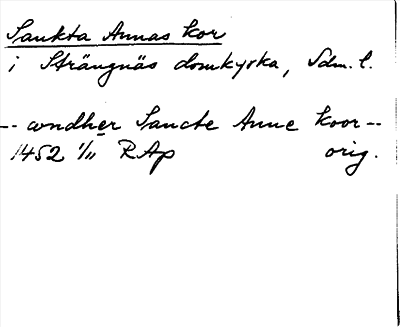 Sankta Annas kor
i Strängnäs domkyrka, Sdm. l.
-- wndher Sancte Anne koor --
1452 1/11 RAp orig.